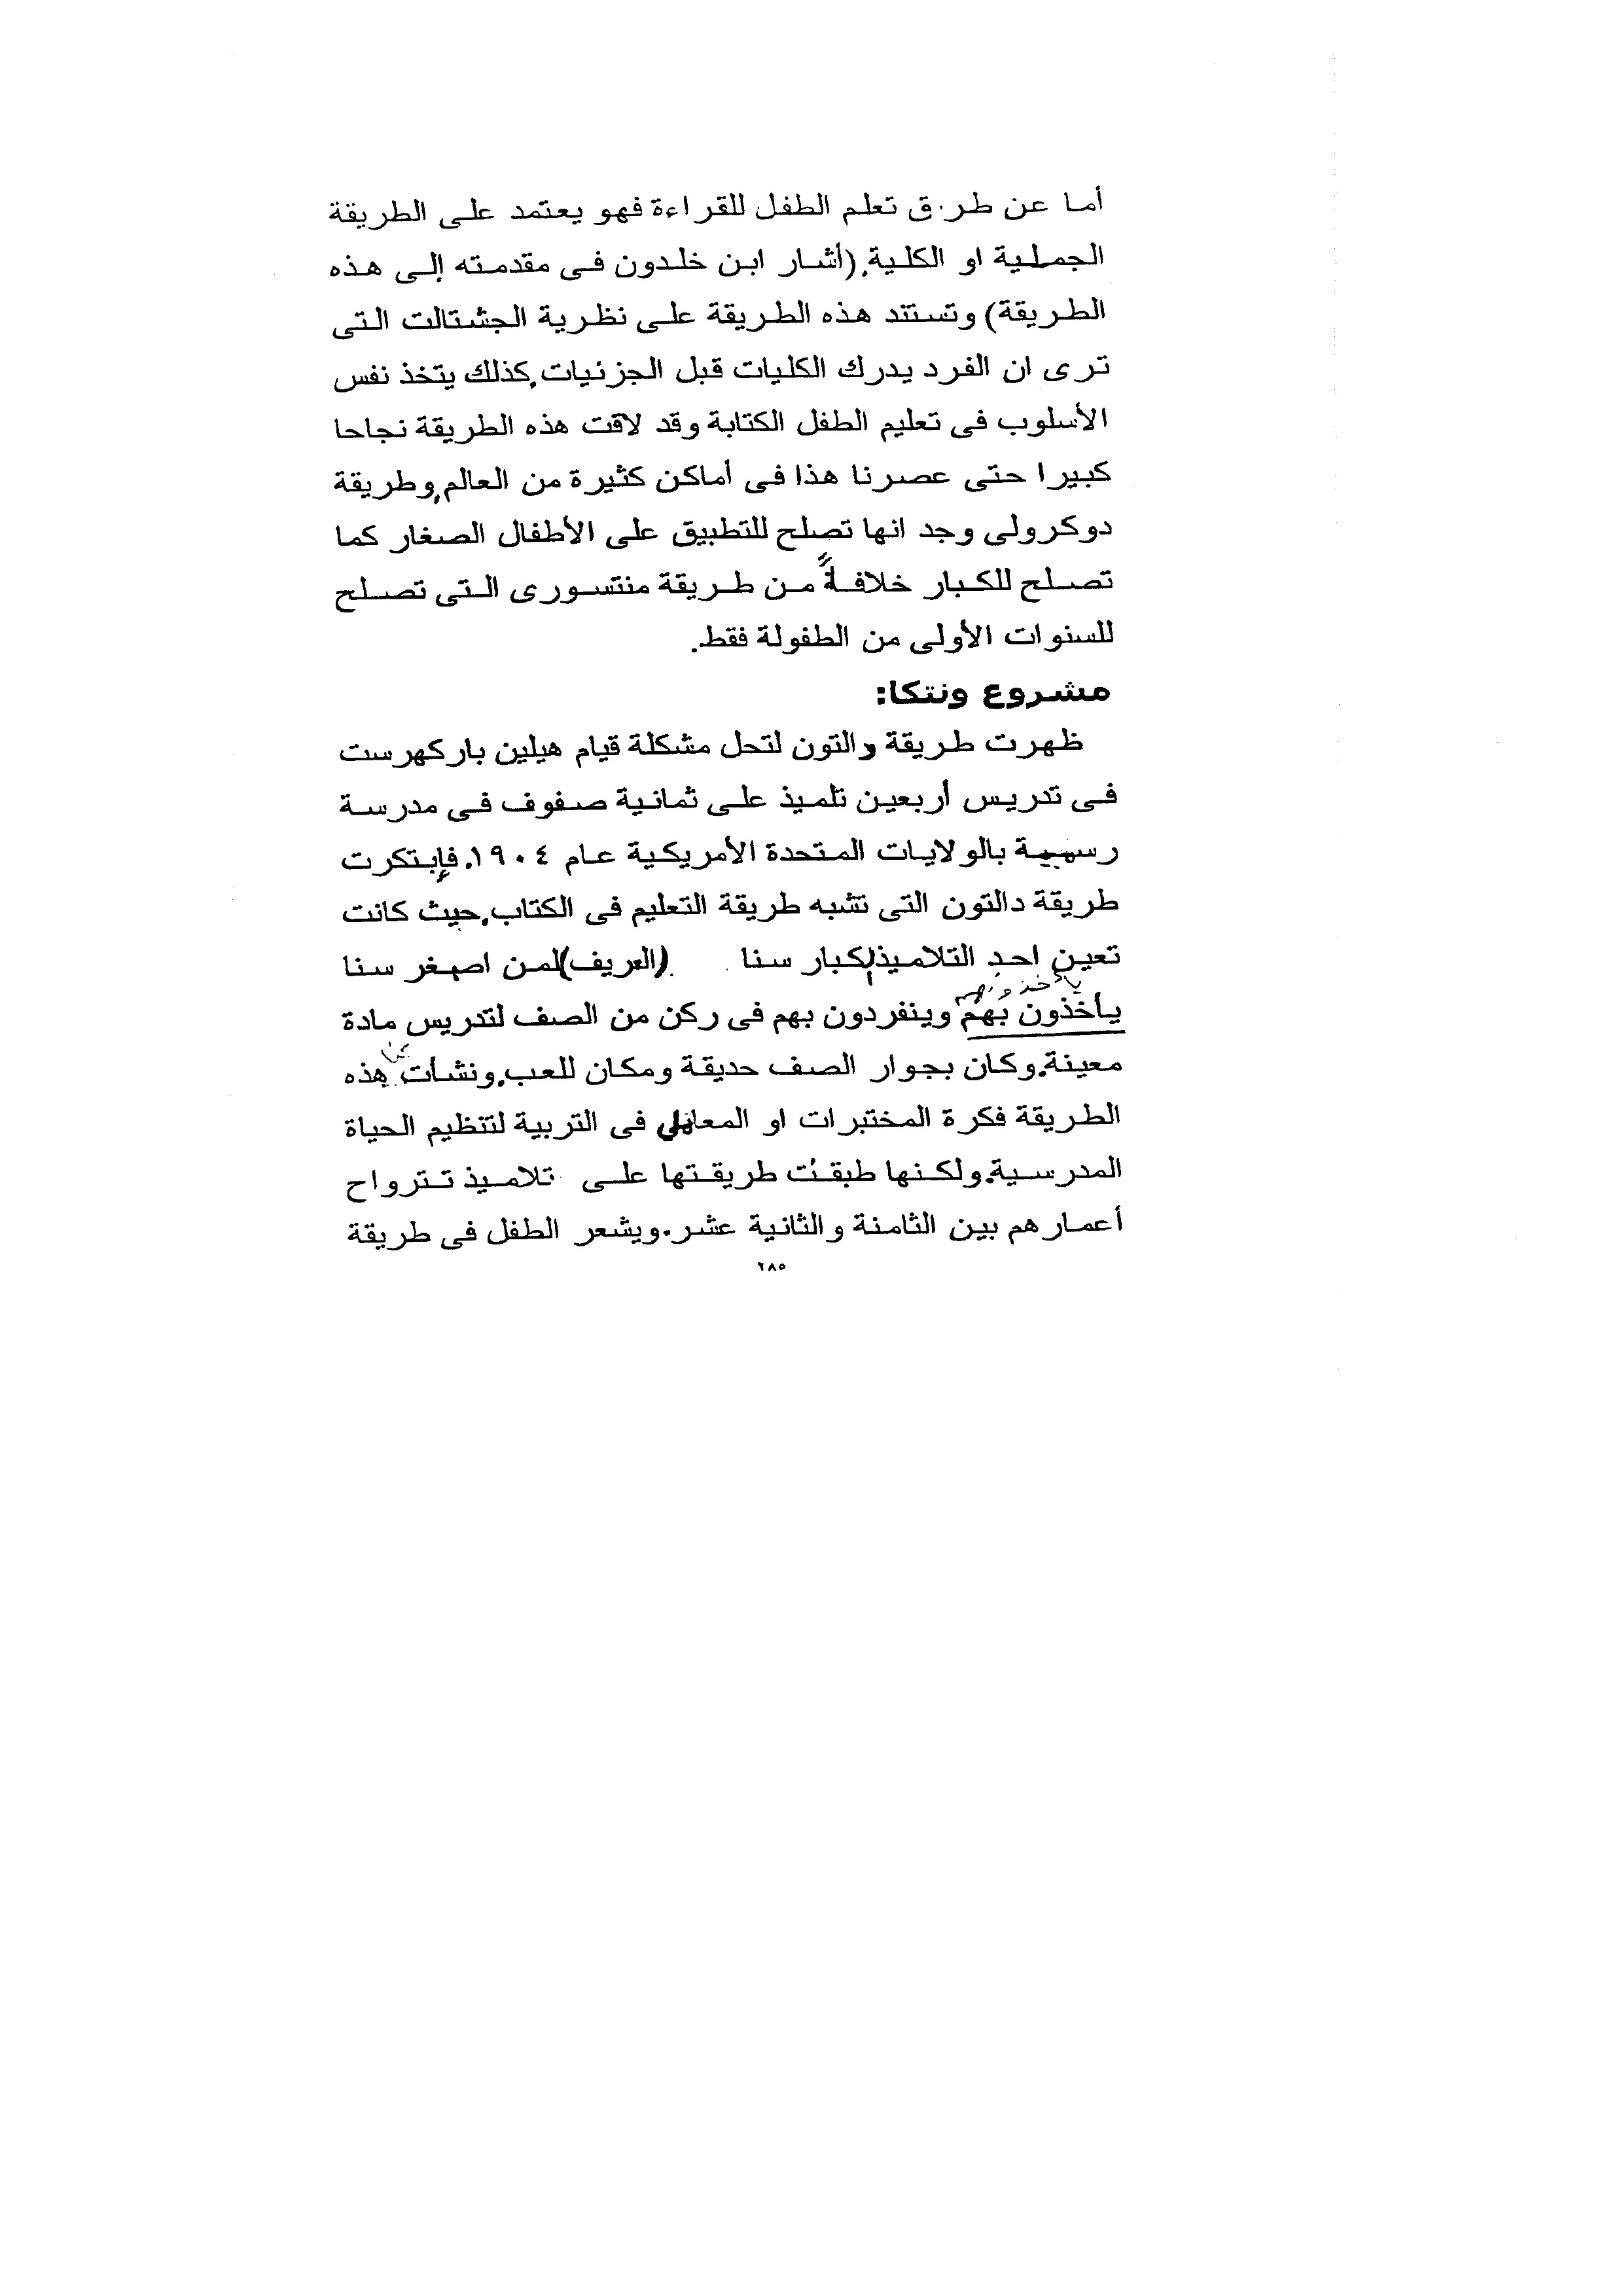 أما عن طرق تعلم الطفل للقراءة فهو يعتمد على الطريقة
الجملية او الكلية.(أشار ابن خلدون فى مقدمته إلى هذه
الطريقة) وتستند هذه الطريقة على نظرية الجشتالت التى
ترى ان الفرد يدرك الكليات قبل الجزئيات.كذلك يتخذ نفس
الأسلوب فى تعليم الطفل الكتابة وقد لاقت هذه الطريقة نجاحا
كبيرا حتى عصرنا هذا فى أماكن كثيرة من العالم.وطريقة
دوكرولى وجد انها تصلح للتطبيق على الأطفال الصغار كما
تصلح للكبار خلافاً من طريقة منتسورى التى تصلح
للسنوات الأولى من الطفولة فقط.
مشروع ونتكا:
ظهرت طريقة دالتون لتحل مشكلة قيام هيلين باركهرست
فى تدريس أربعين تلميذ على ثمانية صفوف فى مدرسة
رسمية بالولايات المتحدة الأمريكية عام ١٩٠٤. فإبتكرت
طريقة دالتون التى تشبه طريقة التعليم فى الكتاب.حيث كانت
تعين احد التلاميذ لكبار سنا (العريف)لمن اصغر سنا
يأخذونهم
يأخذون بهم وينفردون بهم فى ركن من الصف لتدريس مادة
معينة.وكان بجوار الصف حديقة ومكان للعب.ونشأت عن هذه
الطريقة فكرة المختبرات او المعامل فى التربية لتنظيم الحياة
المدرسية.ولكنها طبقت طريقتها على تلاميذ تترواح
أعمارهم بين الثامنة والثانية عشر.ويشعر الطفل فى طريقة
٢٨٥